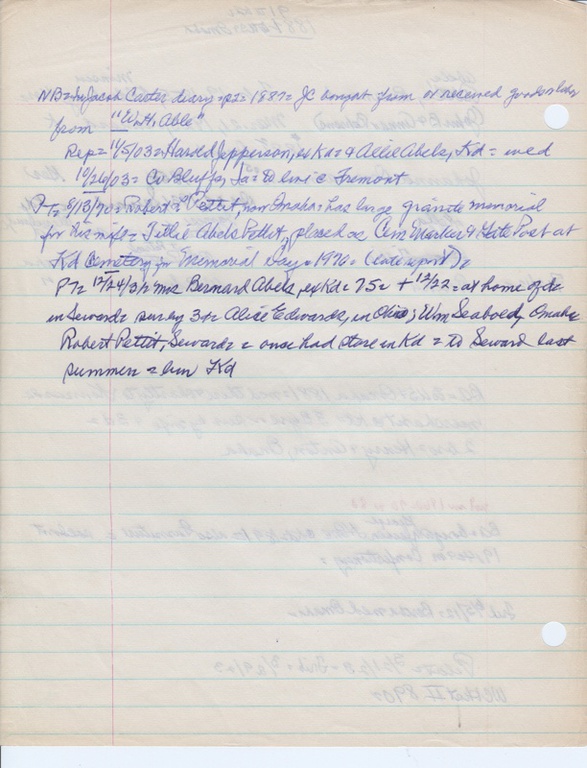 NB= In Jacob Carter diary= p2= 1887= JC bought from or received goods
from "W. H. Able"
Rep= 11/5/03= Harold Jepperson, ex Kd= & Allie Abels, Kd= wed
10/26/03= Co Bluffs, Ia= To live Fremont
PT= 8/13/70= Robert Pettit, now Omaha= has large granite memorial
for his wife= Tillie Abels Pettit, placed Cem Marker & Gate Post at
Kd Cemetery in Memorial Day= 1970= (late report)
PT= 12/24/31= Mrs Bernard Abels, ex Kd= 75= + 12/22= at home of
in Seward= sur by 3 Alice Edwards, in Ohio; Wm Seabold, Omaha
Robert Pettit, Seward= once had store in Kd= To Seward last
summer= bur Kd